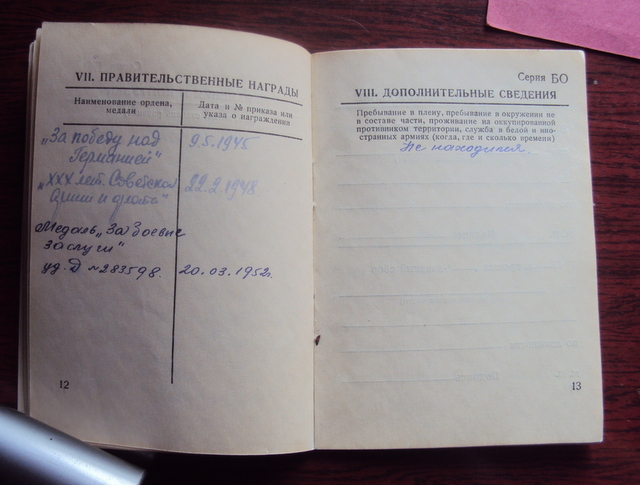 VII. ПРАВИТЕЛЬСТВЕННЫЕ НАГРАДЫ
Наименование ордена,
медали
Дата и № приказа или
указа о награждении
„За победу над
Германией"
9.5.1945
„XXX лет Советской
Армии и флота"
22.2.1948
Медаль „За боевые
заслуги"
уд. Д №283598.
20.03.1952г.
12
Серия БО
VIII. ДОПОЛНИТЕЛЬНЫЕ СВЕДЕНИЯ
Пребывание в плену, пребывание в окружении не
в составе части, проживание на оккупированной
противником территории, служба в белой и ино-
странных армиях (когда, где и сколько времени)
Не находился.
13